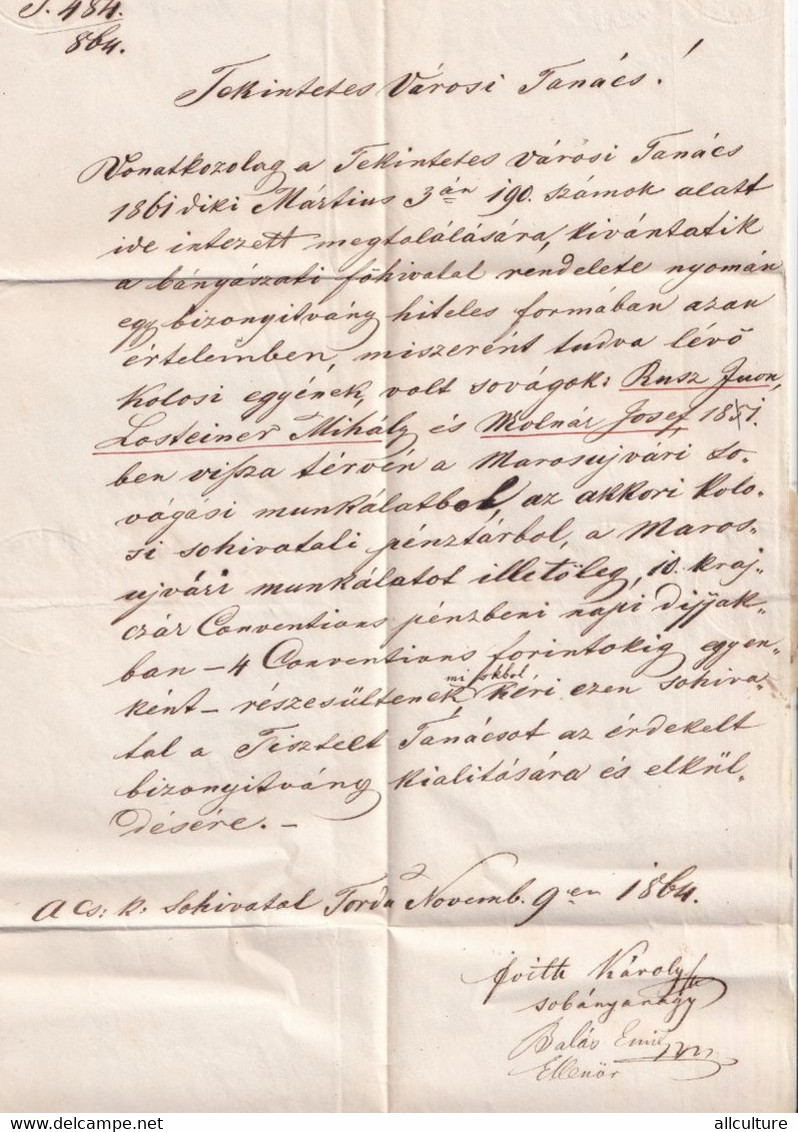 S. 484.
864.
Tekintetes Városi Tanács!
Vonatkozolag a Tekintetes városi Tanács
1861 diki Mártius 3án 190. számok alatt
ide intezett megtalálására, kivántatik
a bányászati főhivatal rendelete nyomán
egy bizonyitvány hiteles formában azon
értelemben, miszerént tudva lévő
Kolosi egyének, volt sovágok: Rusz Juon,
Losteiner Mihály és Molnár Josef 1851.
ben vissza térvén a Marosujvári so-
vágási munkálatbol, az akkori Kolo-
si sohivatali pénztárbol, a Maros-
ujvári munkálatot illetőleg, 10. kraj-
czár Conventions pénzbeni napi dijjak-
ban – 4 Conventions forintokig egyen-
ként – részesültenek mi okbol kéri ezen sohiva-
tal a Tisztelt Tanácsot az érdekelt
bizonyitvány kialitására és elkül-
désére. –
A cs: k: Sohivatal Torda Novemb. 9en 1864.
Károly
sobányanagy
Balás Emil
Ellenör
allculture